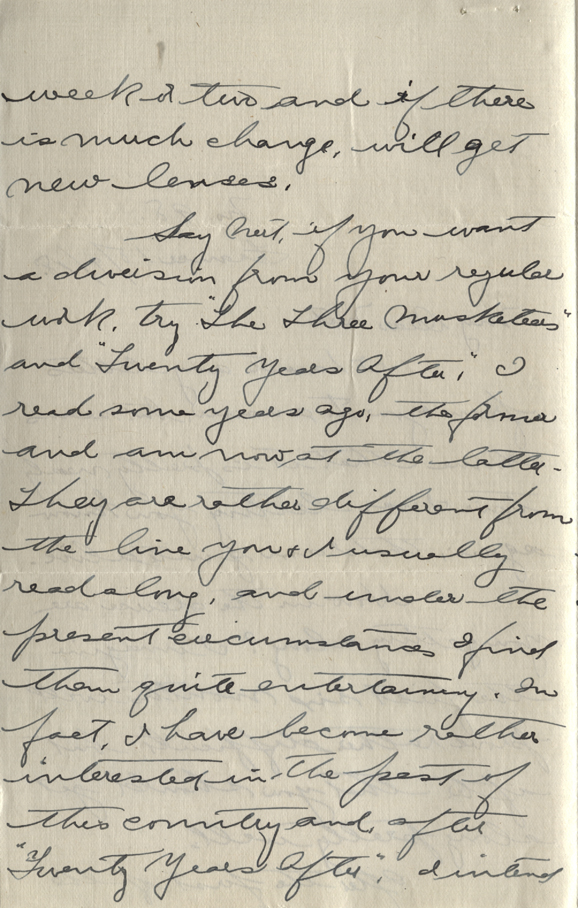 week or two and if there
is much change, will get
new lenses.
Say Neit, if you want
a diversion from your regular
work, try "The Three Musketeers"
and "Twenty Years After," I
read some years ago, the former
and am now at the latter.
They are rather different from
the line you & I usually
read along, and under the
present circumstances I find
them quite entertaining. In
fact, I have become rather
interested in the past of
this country and, after
"Twenty Years After", I intend